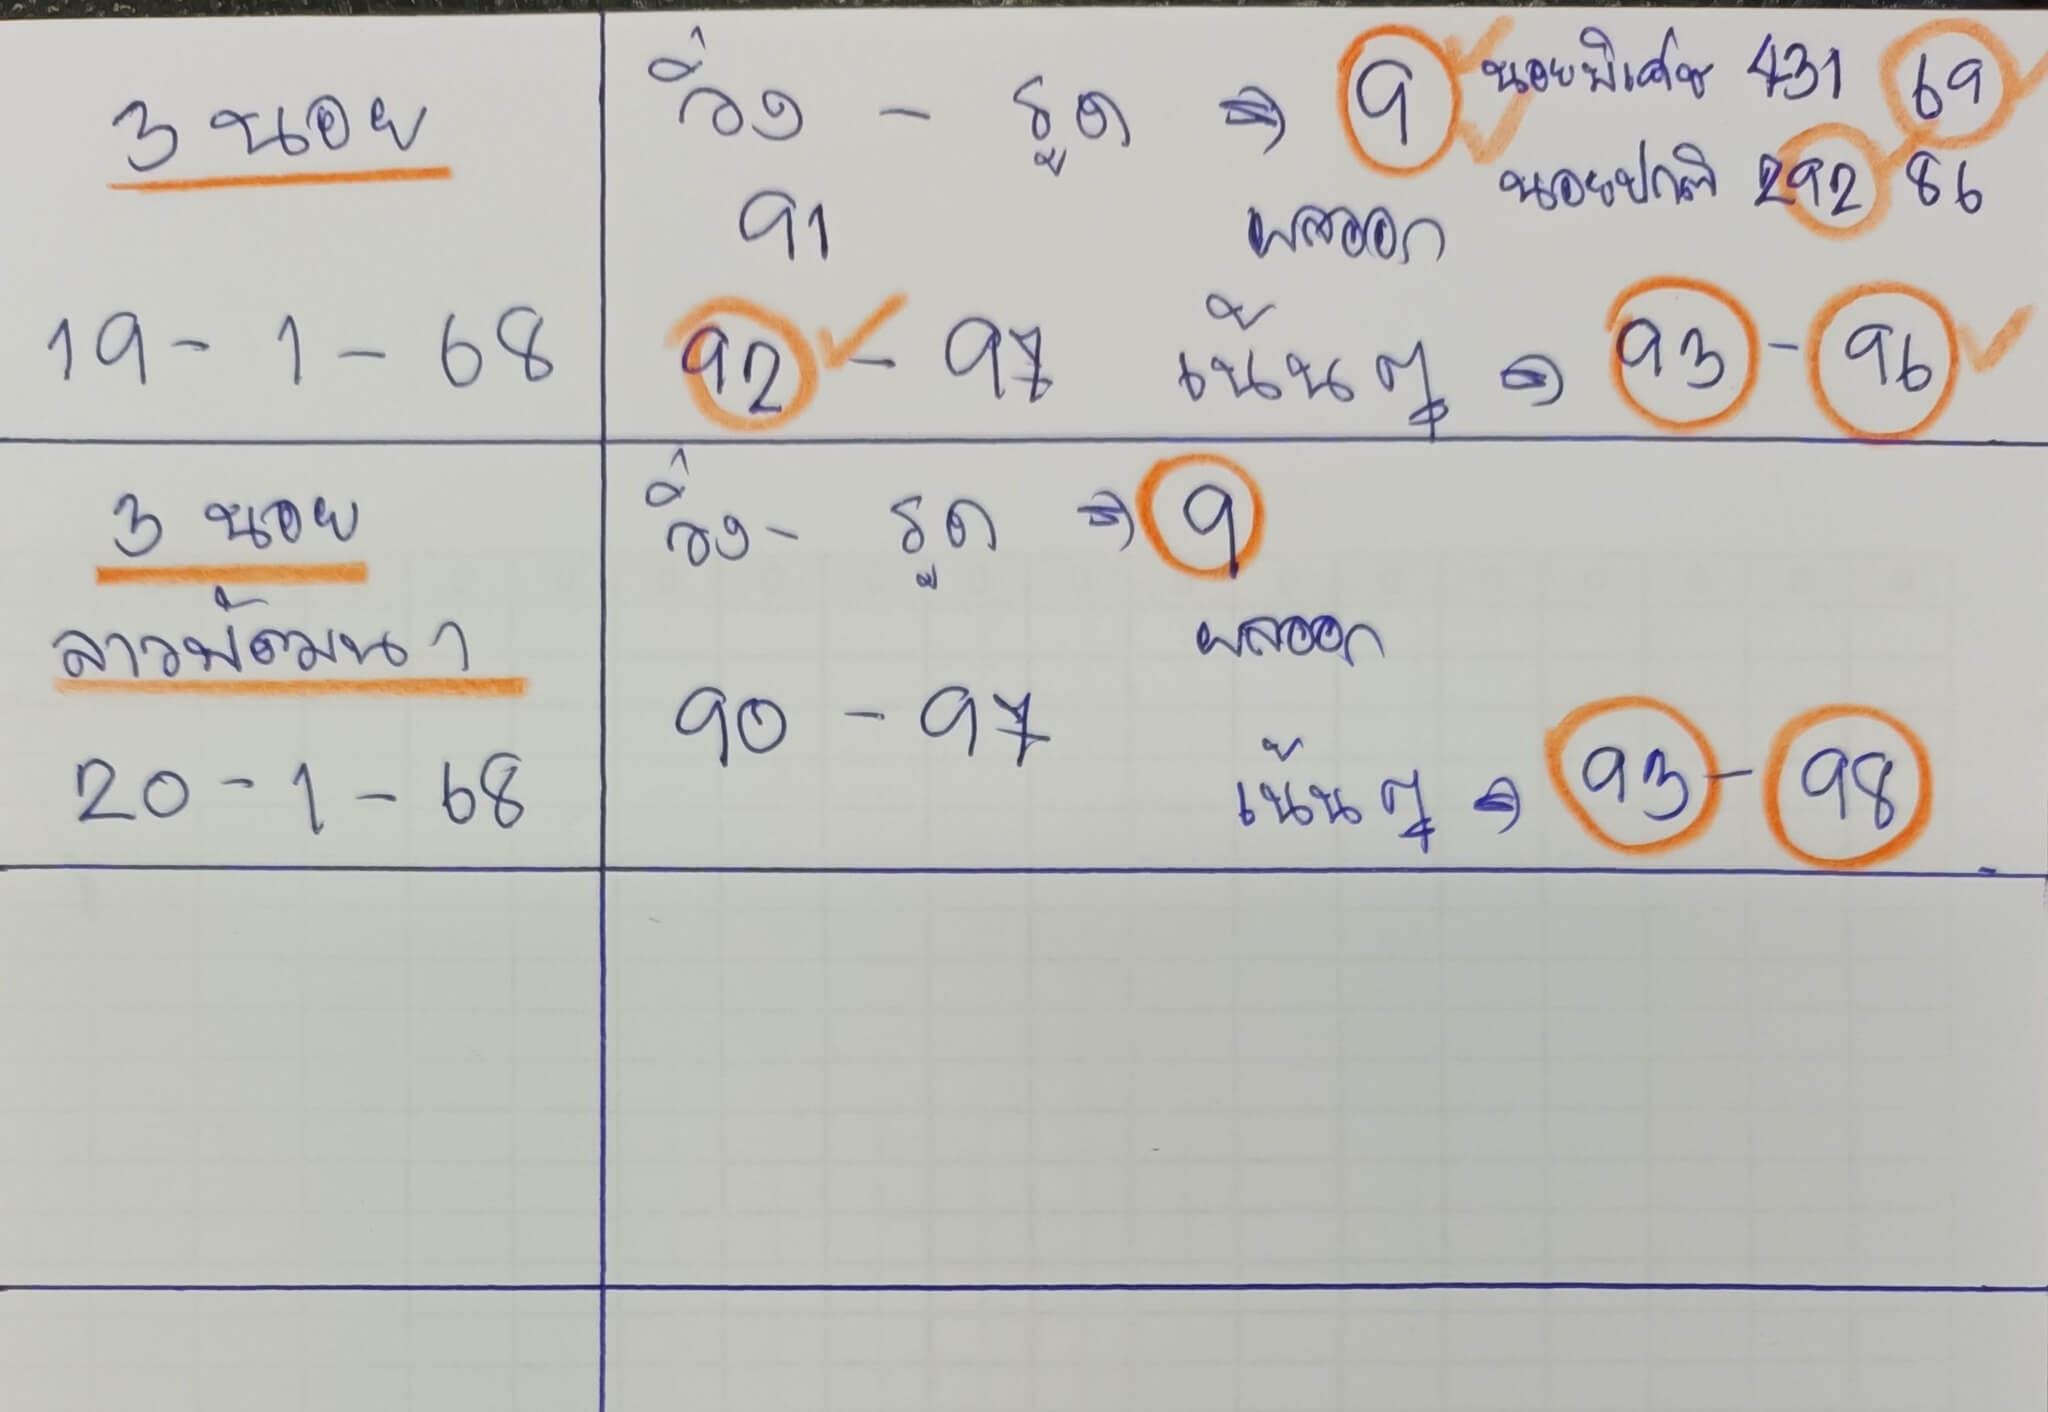 3 นอย
19 - 1 - 68
วิ่ง - รูด ⇒ 9 นอยพิเศษ 431 69
นอยปกติ 292 86
91 ผลออก
92 - 97 เน้นๆ ⇒ 93 - 96
3 นอย
ลาวพัฒนา
20 - 1 - 68
วิ่ง - รูด ⇒ 9
ผลออก
90 - 97
เน้นๆ ⇒ 93 - 98